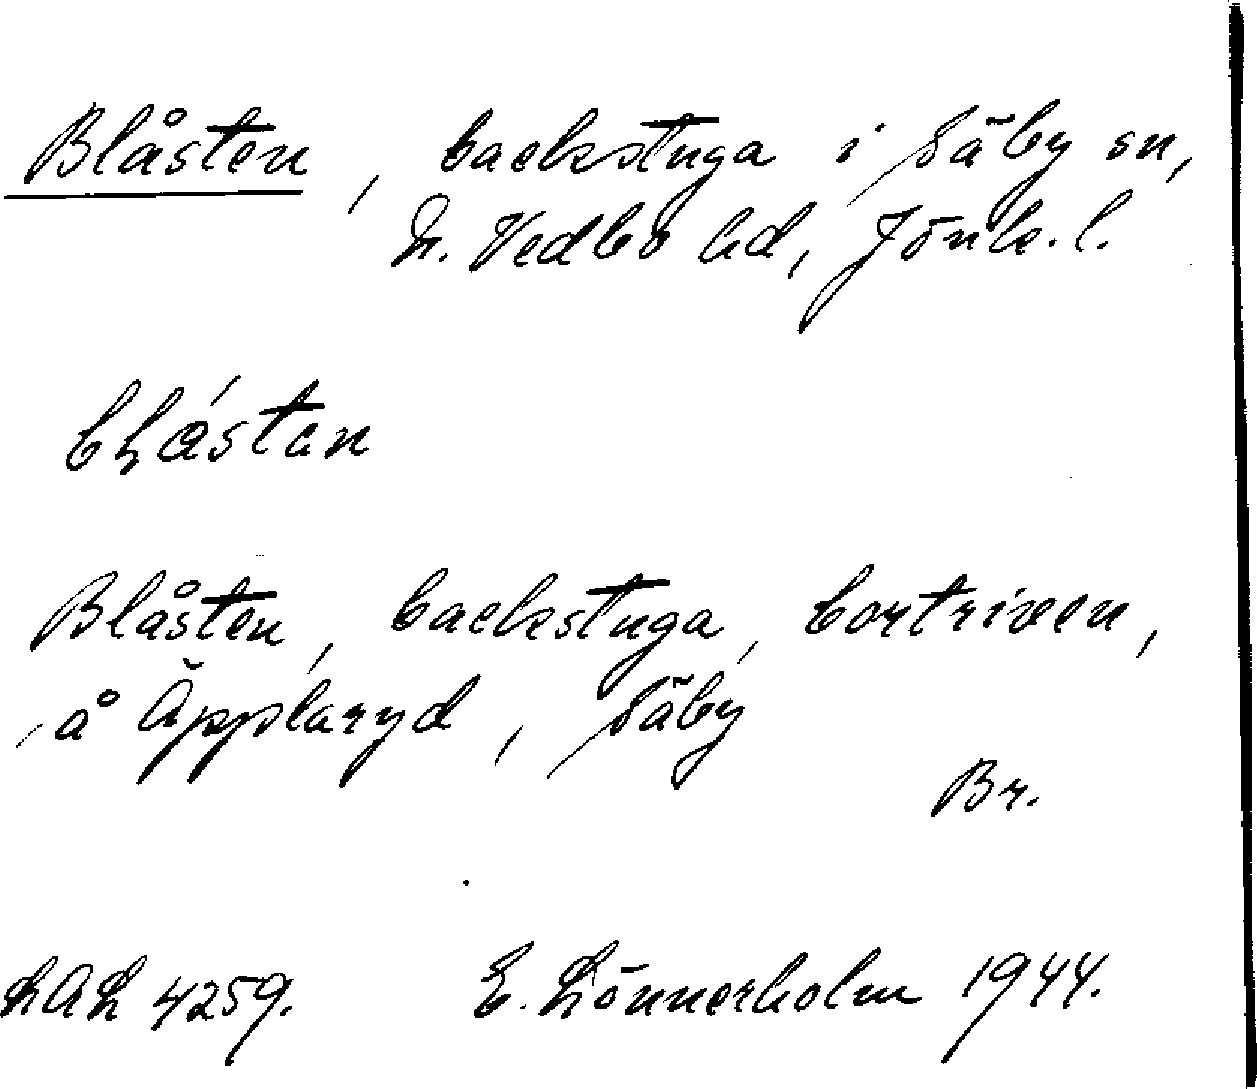 Blåsten, backstuga i Säby sn,
N. Vedbo hd, Jönk. l.
Blåsten, backstuga, bortriven,
å Äpplaryd, Säby
Br.
LAL 4259. E. Lönnerholm 1944.